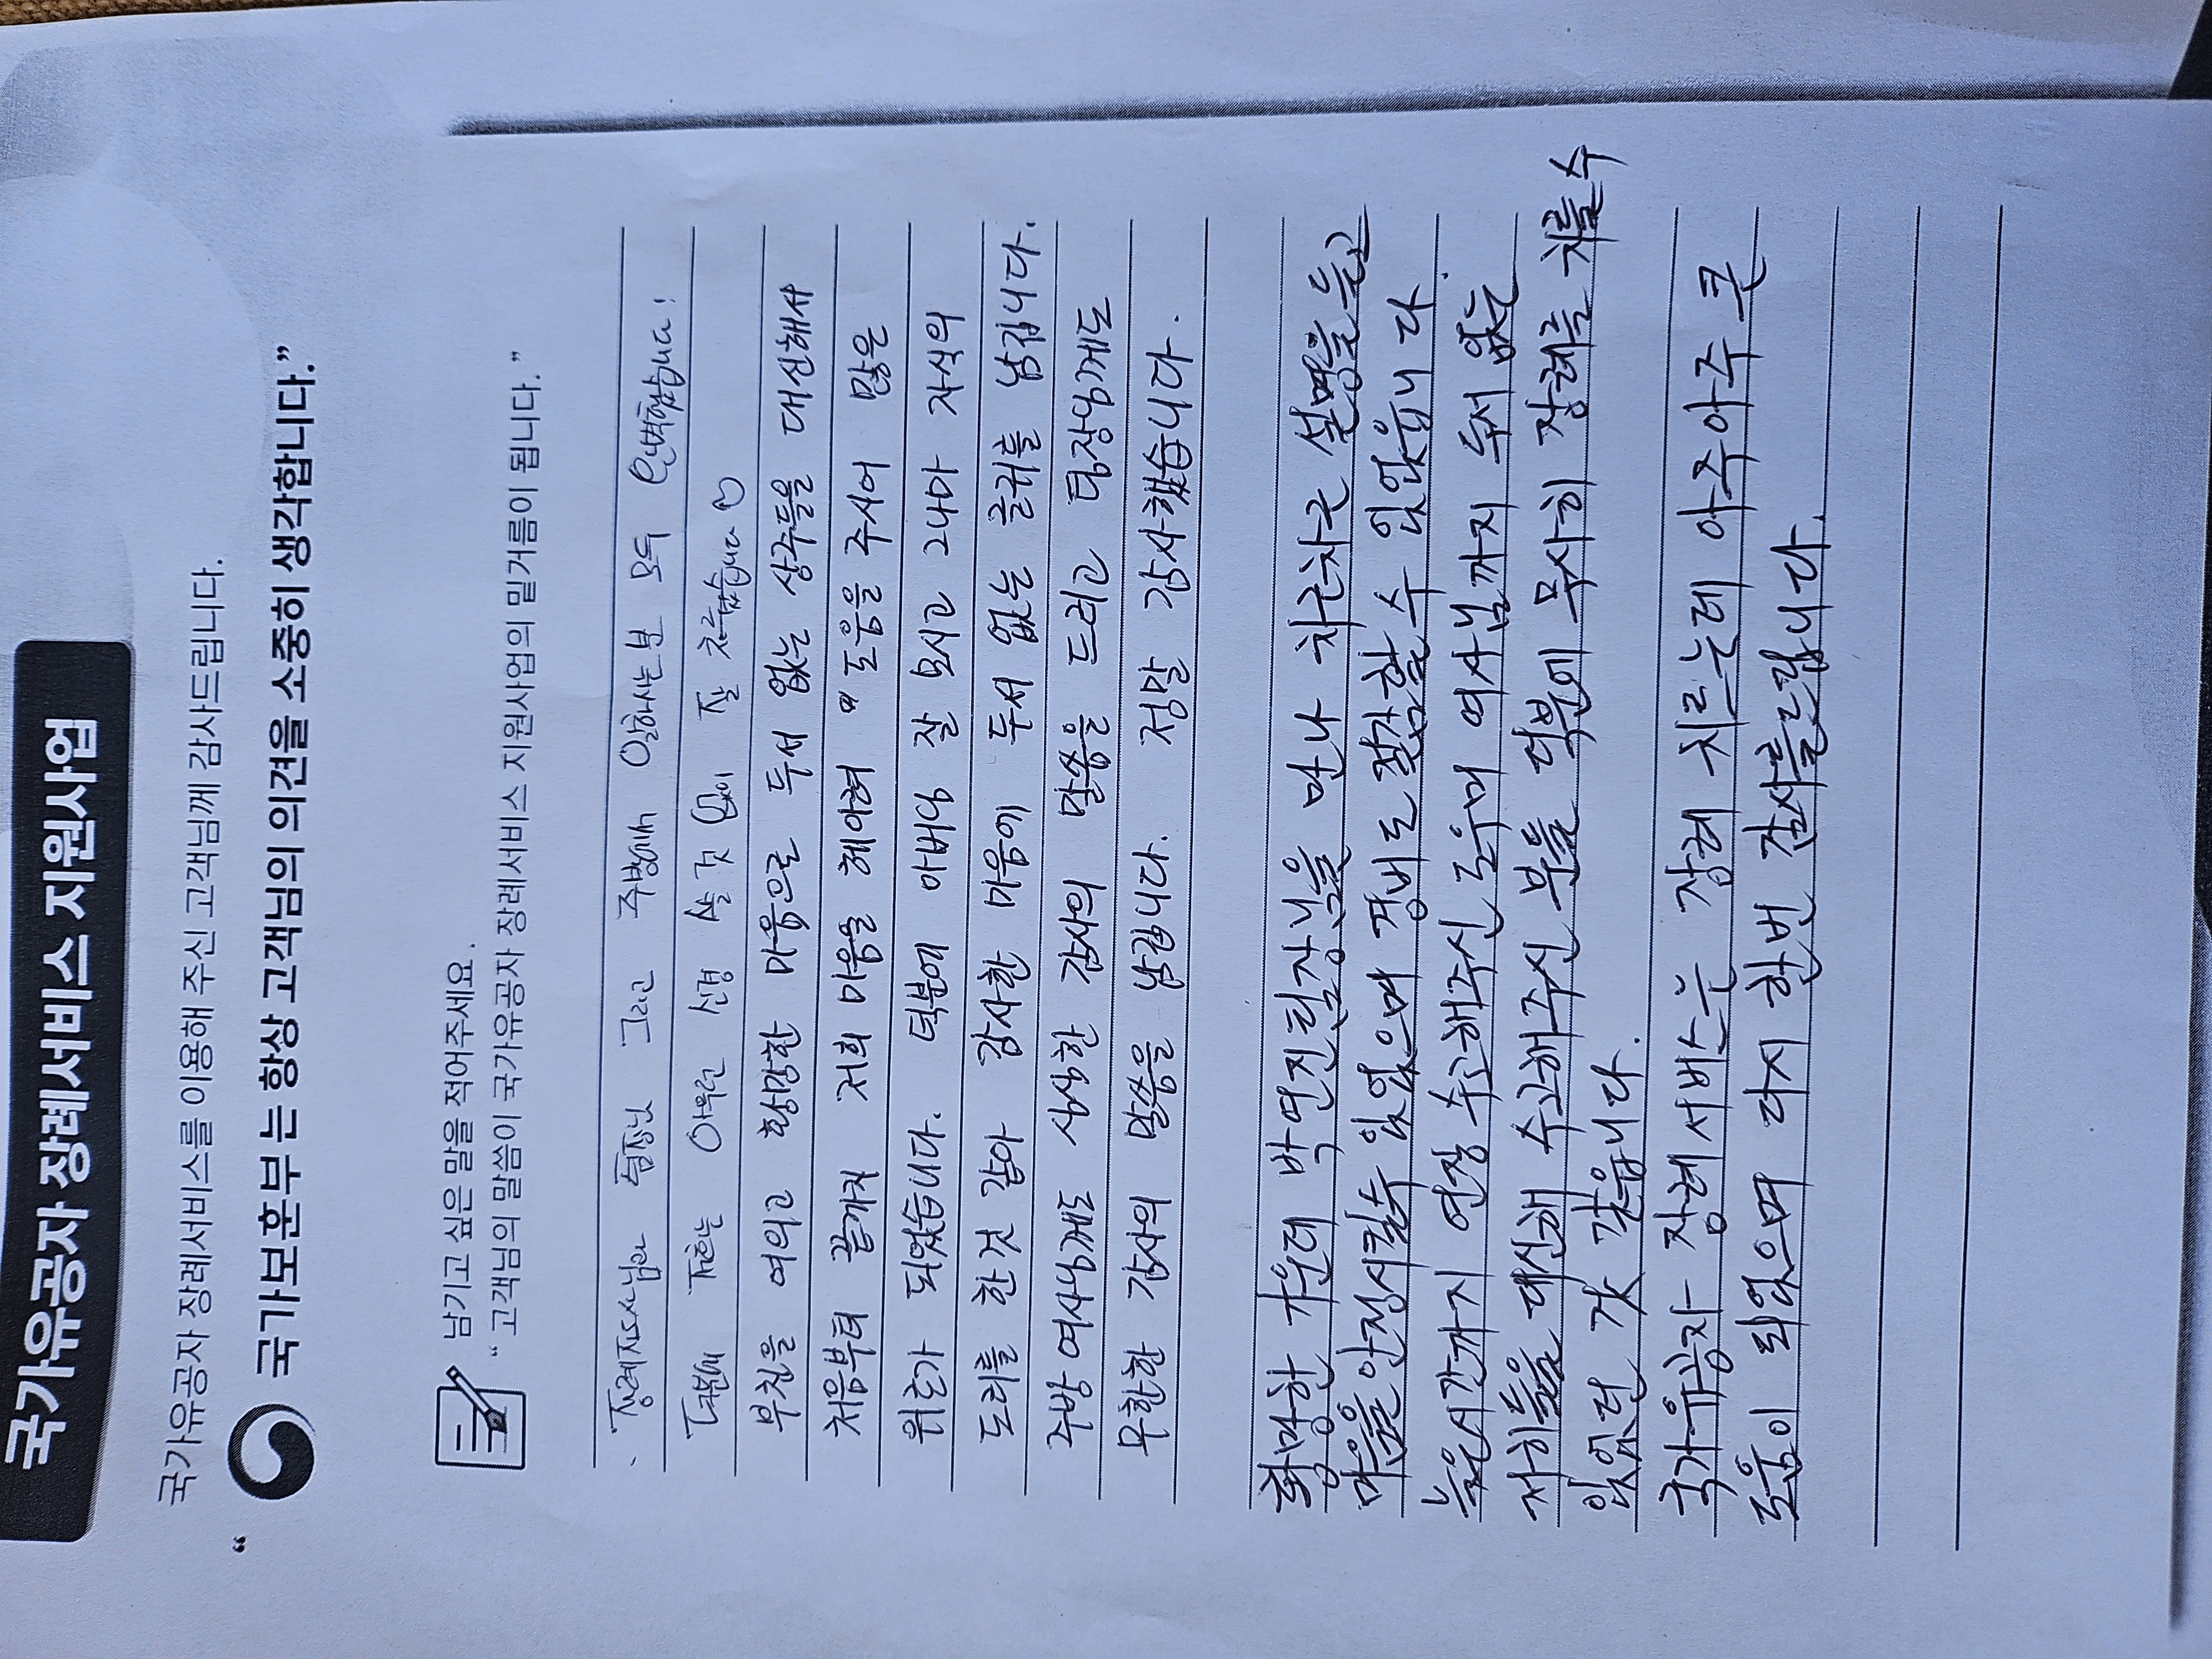 국가유공자 장례서비스 지원사업
국가유공자 장례서비스를 이용해 주신 고객님께 감사드립니다.
“ 국가보훈부 는 항상 고객님의 의견을 소중히 생각합니다.”
남기고 싶은 말을 적어주세요.
“ 고객님의 말씀이 국가유공자 장례서비스 지원사업의 밑거름이 됩니다. ”
장례지도사님과 팀장님 그리고 주방에서 일하시는분 모두 완벽했습니다!
덕분에 저희는 아무런 신경 쓸 것 없이 잘 치루었습니다 ♡
부친을 여의고 황망한 마음으로 두서 없는 상주들을 대신해서
처음부터 끝까지 저희 마음을 헤아려 도움을 주시어 많은
위로가 되었습니다. 덕분에 아버님 잘 모시고 그나마 자식의
도리를 한것 같아 감사한 마음에 두서 없는 글귀를 남깁니다.
주방 여사님께도 심심한 감사의 말씀을 드리고 팀장님께도
무한한 감사의 말씀을 남깁니다. 정말 감사했습니다.
황망한 가운데 박연진팀장님을 만나 차근차근 설명을 듣고
마음을 안정시킬수 있었으며 경비도 절감할 수 있었읍니다.
늦은시간까지 연장 수고해주신 도우미 여사님까지 두서 없는
저희들을 대신해 수고해주신 분들 덕분에 무사히 장례를 치를수
있었던 것 같읍니다.
국가유공자 장례서비스는 장례 치르는데 아주아주 큰
도움이 되었으며 다시 한번 감사를드립니다.